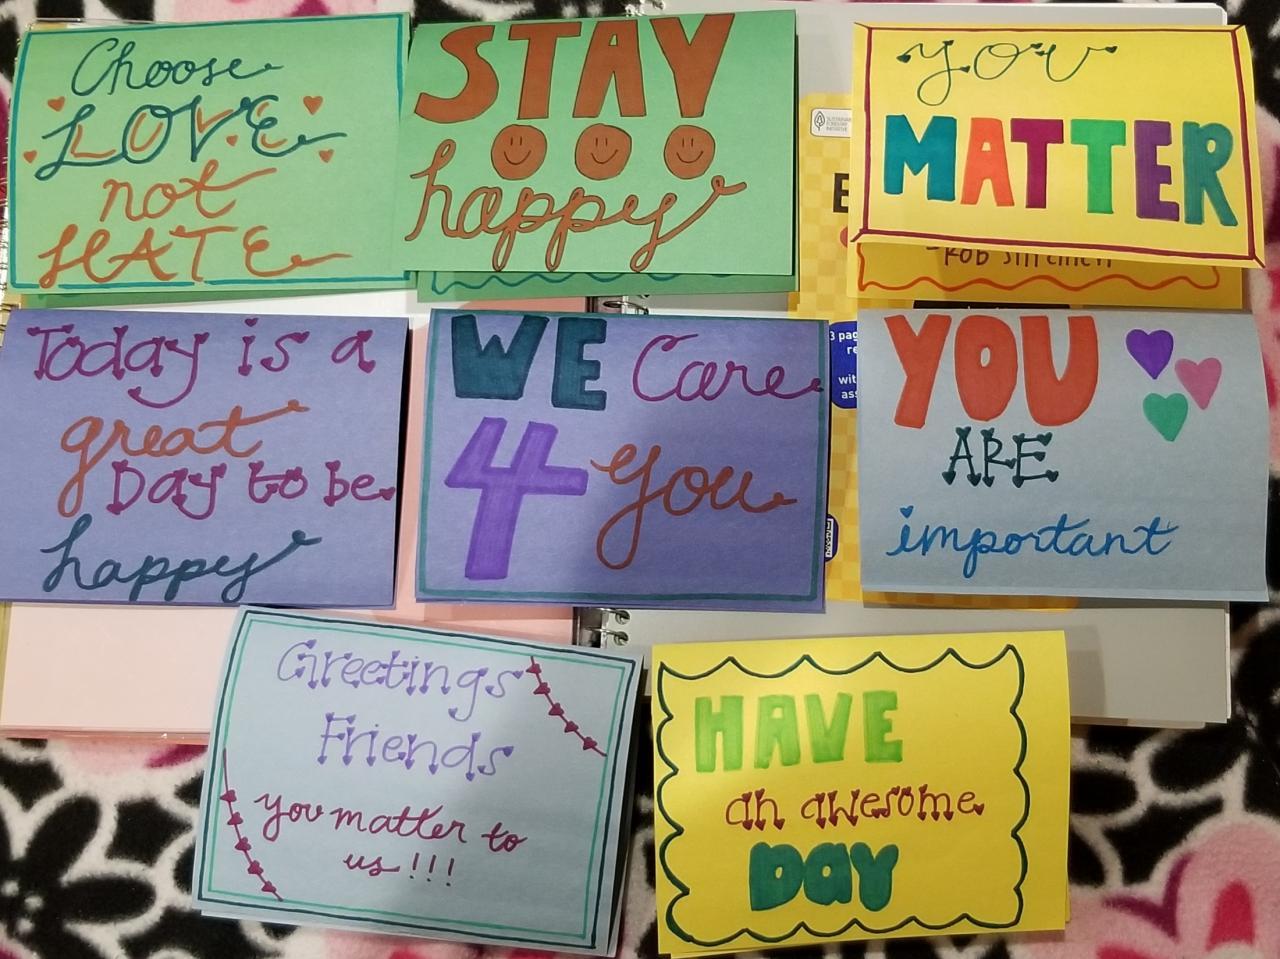 Choose
LOVE
not
HATE
STAY
happy
you
MATTER
SUSTAINABLE
FORESTRY
INITIATIVE
- ROB
Today is a
great
Day to be
happy
WE Care
4 You
3
YOU
ARE
important
Greetings
Friends
you matter to
us!!!
HAVE
an awesome
DAY